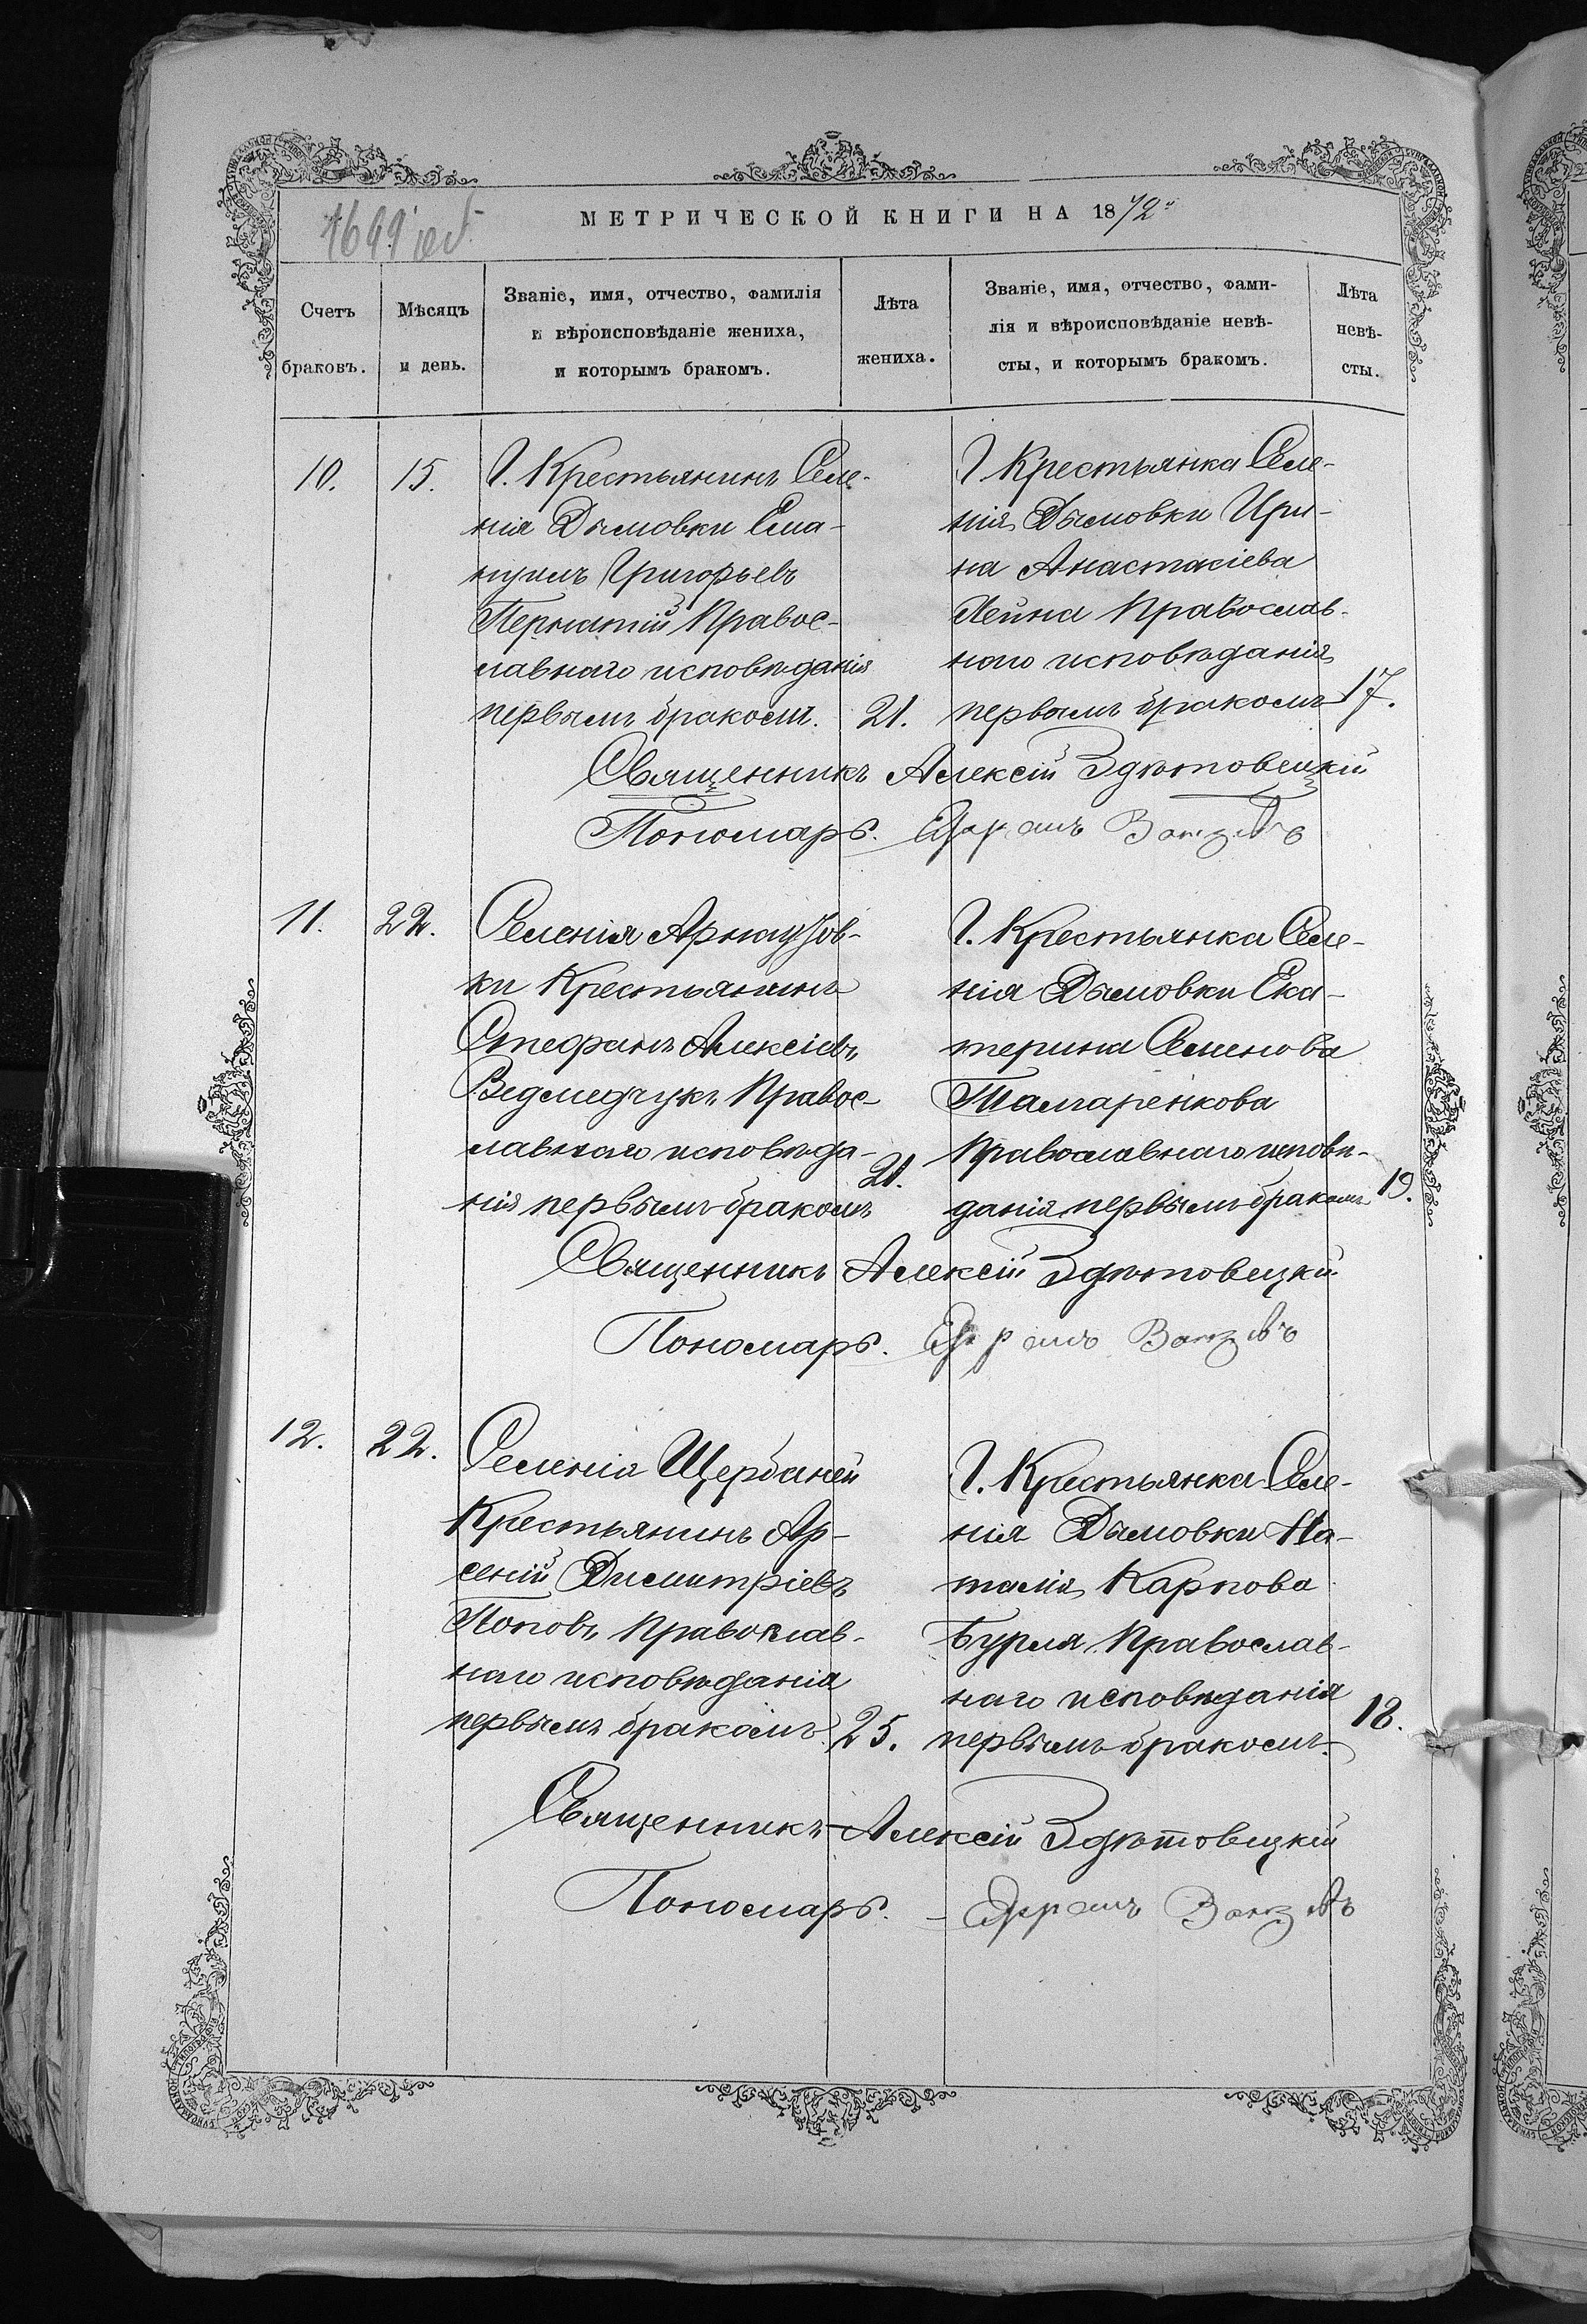 МЕТРИЧЕСКОЙ КНИГИ НА 1872
1649
Счетъ браковъ.
Мѣсяцъ и день.
Званіе, имя, отчество, фамилія
и вѣроисповѣданіе жениха,
и которымъ бракомъ.
Лѣта жениха.
Званіе, имя, отчество, фами-
лія и вѣроисповѣданіе невѣ-
сты, и которымъ бракомъ.
Лѣта невѣ-сты.
10.
15.
Крестьянинъ Селе-
нія Дымовки Ема-
нуилъ Григорьевъ
Пернатій Правос-
лавнаго исповѣданія
первымъ бракомъ.
21.
Крестьянка Селе-
нія Дымовки Ири-
на Анастасіева
Лейна Православ-
наго исповѣданія
первымъ бракомъ
17.
Священникъ Алексій Здѣтовецкій
Пономарь.
11.
22.
Селенія Арнаутов-
ки Крестьянинъ
Стефанъ Алексіевъ
Ведмедчукъ Правос-
лавнаго исповѣда-
нія первымъ бракомъ
21.
Крестьянка Селе-
нія Дымовки Ека-
терина Семенова
Тамаренкова
Православнаго исповѣ-
данія первымъ бракомъ
19.
Священникъ Алексій Здѣтовецкій
Пономарь.
12.
22.
Селенія Щербаней
Крестьянинъ Ар-
сеній Димитріевъ
Поповъ Православ-
наго исповѣданія
первымъ бракомъ
25.
Крестьянка Селе-
нія Дымовки На-
талія Карпова
Бурля Православ-
наго исповѣданія
первымъ бракомъ.
18.
Священникъ Алексій Здѣтовецкій
Пономарь.